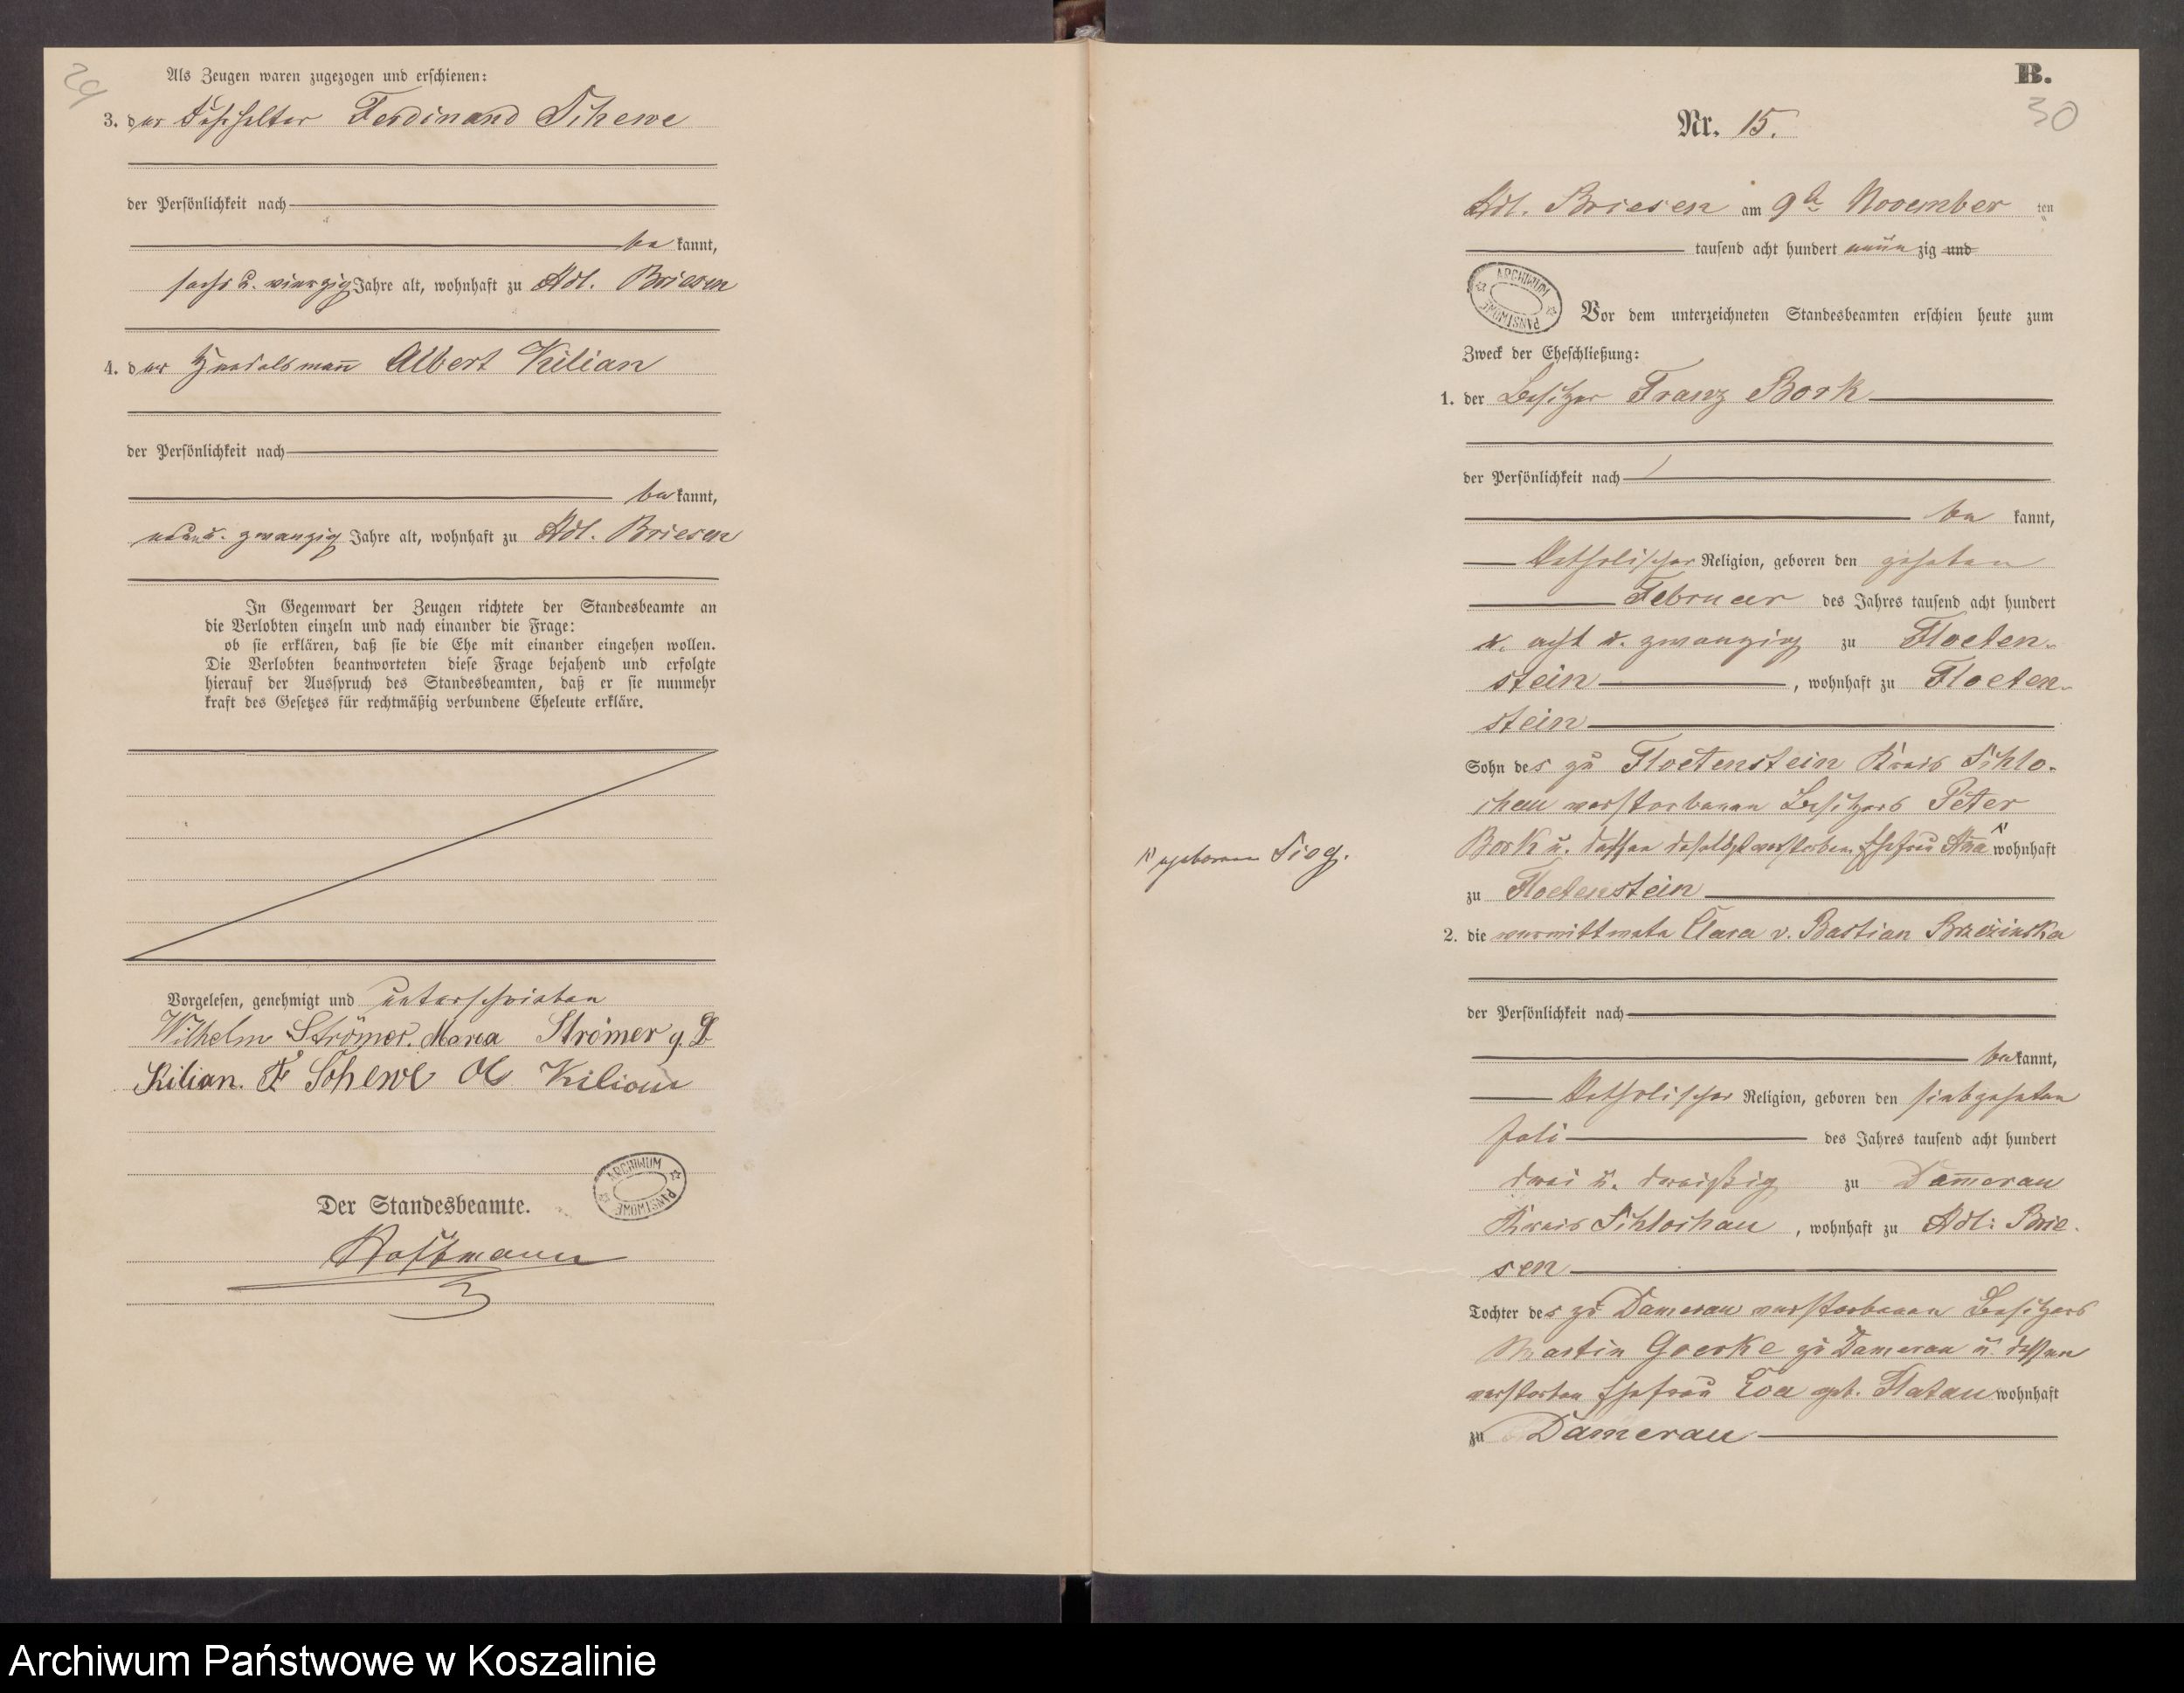 29
Als Zeugen waren zugezogen und erschienen:
3. der Ferdinand Schewe
der Persönlichkeit nach
be kannt,
sechs u. vierzig Jahre alt, wohnhaft zu Adl. Briesen
4. der Handelsmann Albert Kilian
der Persönlichkeit nach
be kannt,
neun u. zwanzig Jahre alt, wohnhaft zu Adl. Briesen
In Gegenwart der Zeugen richtete der Standesbeamte an
die Verlobten einzeln und nach einander die Frage:
ob sie erklären, daß sie die Ehe mit einander eingehen wollen.
Die Verlobten beantworteten diese Frage bejahend und erfolgte
hierauf der Ausspruch des Standesbeamten, daß er sie nunmehr
kraft des Gesetzes für rechtmäßig verbundene Eheleute erkläre.
Vorgelesen, genehmigt und unterschrieben
Wilhelm Strömer. Maria Strömer g.
Kilian. F Schewe A Kilian
ARCHIWUM PAŃSTWOWE
Der Standesbeamte.
Hoffmann
B.
30
Nr. 15.
Adl. Briesen am 9t November ten
tausend acht hundert neun zig und
ARCHIWUM PAŃSTWOWE
Vor dem unterzeichneten Standesbeamten erschien heute zum
Zweck der Eheschließung:
1. der Besitzer Franz Bork
der Persönlichkeit nach
be kannt,
Katholischer Religion, geboren den zehnten
Februar des Jahres tausend acht hundert
u. acht u. zwanzig zu Floeten-
stein, wohnhaft zu Floeten-
stein
Sohn des zu Floetenstein Kreis Schlo-
chau verstorbenen Besitzers Peter
Bork u. dessen daselbst verstorben. Ehefrau Anna wohnhaft
geborene Sieg.
zu Floetenstein
2. die verwittwete Clara v. Bastian Brzezinska
der Persönlichkeit nach
be kannt,
Katholischer Religion, geboren den siebzehnten
Juli des Jahres tausend acht hundert
drei u. dreißig zu Damerau
Kreis Schlochau, wohnhaft zu Adl: Brie-
sen
Tochter des zu Damerau verstorbenen Besitzers
Martin Goerke zu Damerau u. dessen
verstorben Ehefrau Eva geb. Flatau wohnhaft
zu Damerau
Archiwum Państwowe w Koszalinie